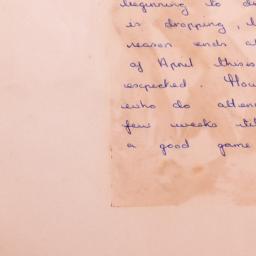 beginning to de
is dropping, b
reason ends a
of April this
expected. How
who do atten
few weeks sti
a good game